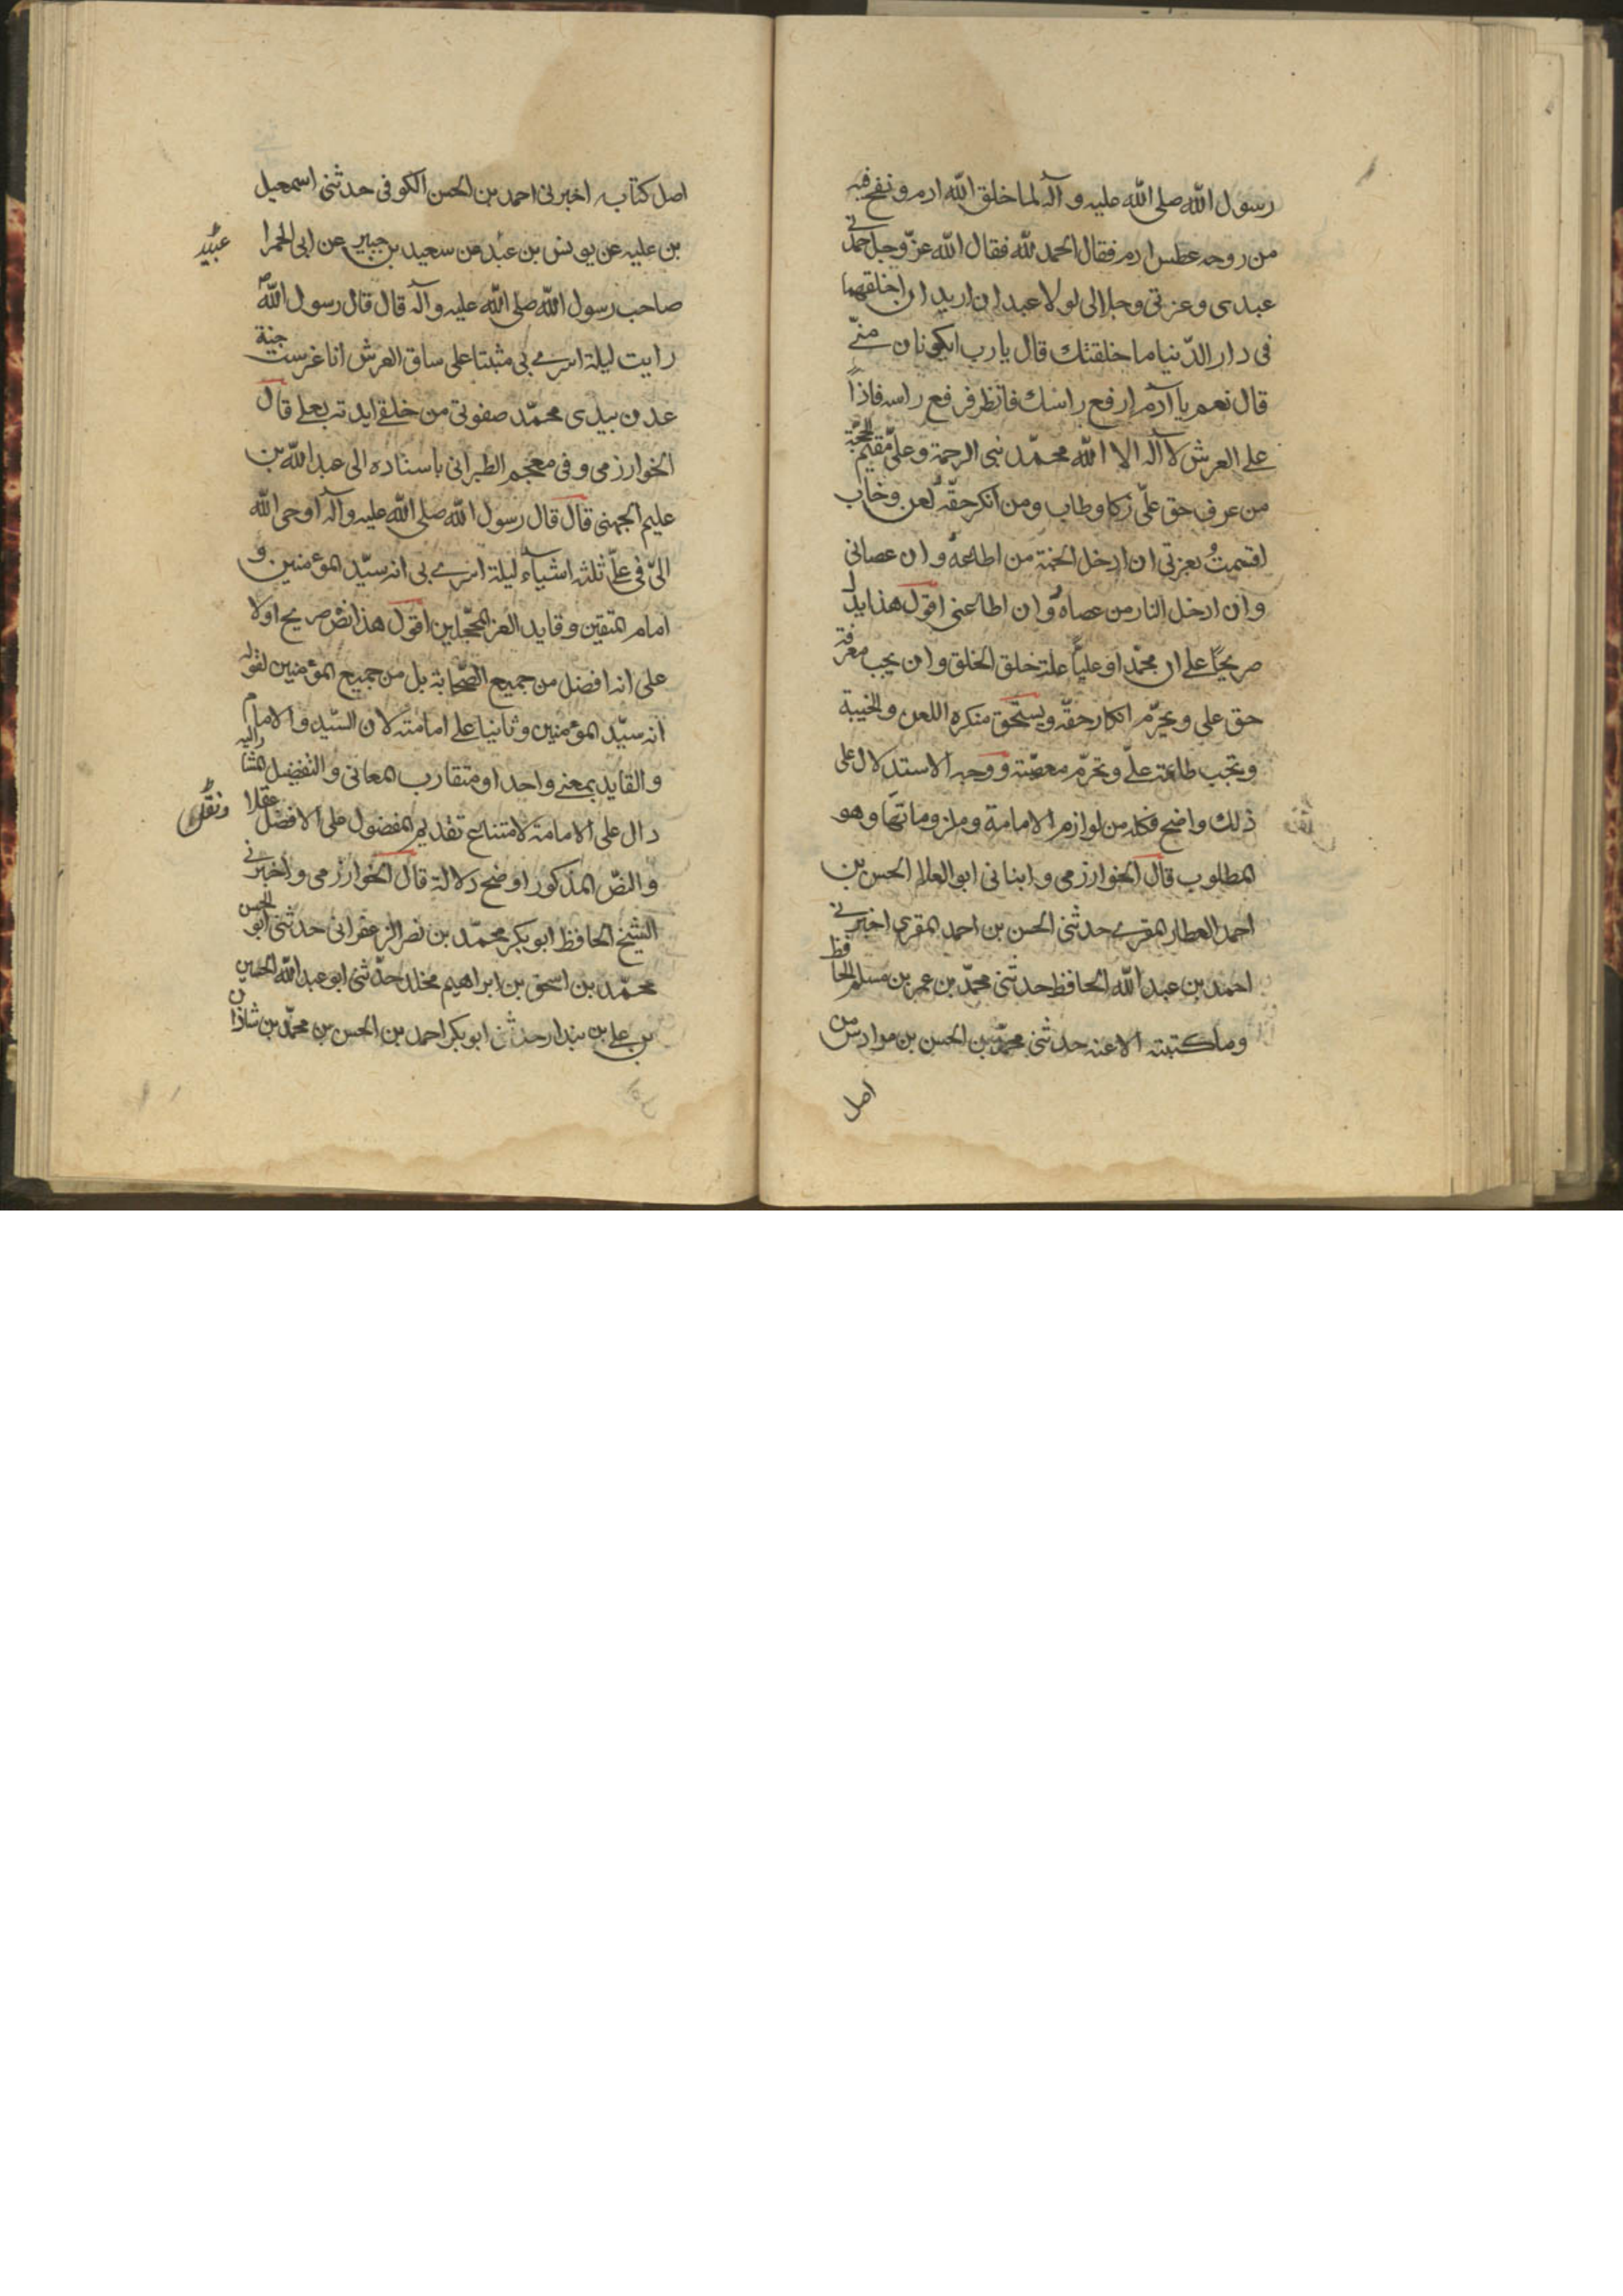 رسول الله صلى الله عليه وآله لما خلق الله ادم ونفخ فيه
من روحه عطس ادم فقال الحمد لله فقال الله عزّ وجل حمدني
عبدى وعزتى وجلالى لولا عبدان اريد ان اخلقهما
فى دار الدّنيا ما خلقتك قال يا رب ايكونان منّى
قال نعم يا آدم ارفع راسك فانظر فرفع راسه فاذاً
على العرش لا آله الا الله محمّد نبى الرحمة وعلىّ مقيم الحجّة
من عرف حق علىّ زكا وطاب ومن انكر حقّه لعن وخاب
اقسمتُ بعزتى ان ادخل الجنة من اطاعه وان عصانى
وان ادخل النار من عصاه وان اطاعنى اقول هذا يدل
صريحاً على ان محمّدا وعلياً علة خلق الخلق وان يجب معرفة
حق على ويحرّم انكار حقّه ويستحق منكره اللعن والخيبة
وتجب طاعته علىّ وتحرّم معصيته ووجه الاستدلال على
ذلك واضح فكله من لوازم الامامة وملزوماتها وهو
المطلوب قال الخوارزمى وانبانى ابو العلا الحسن بن
احمد العطار المقرى حدثنى الحسن بن احمد المقرى اخبرنى
احمد بن عبد الله الحافظ حدثنى محمّد بن عمر بن مسلم الحافظ
وما كتبته الا عنه حدثنى محمّد بن الحسن بن مرادس من
اصل
اصل كتابه اخبرنى احمد بن الحسن الكوفى حدثنى اسمعيل
بن عليه عن يونس بن عبد عن سعيد بن جبير عن ابى الحمرا
عبيد
صاحب رسول الله صلى الله عليه وآله قال قال رسول الله ص
رايت ليلة اسرى بى مثبتا على ساق العرش انا غرست جنة
عدن بيدى محمّد صفوتى من خلقى ايدته بعلى قال
الخوارزمى وفى معجم الطبرانى باسناده الى عبد الله بن
عليم الجهنى قال قال رسول الله صلى الله عليه وآله اوحى الله
الىّ فى علىّ ثلثه اشياء ليلة اسرى بى انه سيّد المؤمنين و
امام المتقين وقايد الغر المحجلين اقول هذا نصّ صريح اولا
على انه افضل من جميع الصّحابة بل من جميع المؤمنين لقوله
انه سيّد المؤمنين وثانيا على امامته لان السّيد والامام
والقايد بمعنى واحد او متقارب المعانى والتفضيل المشار اليه
دال على الامامة لامتناع تقديم المفضول على الافضل عقلا
ونقلا
والنصّ المذكور اوضح دلالة قال الخوارزمى واخبرنى
الشيخ الحافظ ابو بكر محمّد بن نصر الزعفرانى حدثنى ابو الحسن
محمّد بن اسحق بن ابراهيم مخلد حدّثنى ابو عبد الله الحسين
بن على بن بندار حدثنى ابو بكر احمد بن الحسن بن محمّد بن شاذان